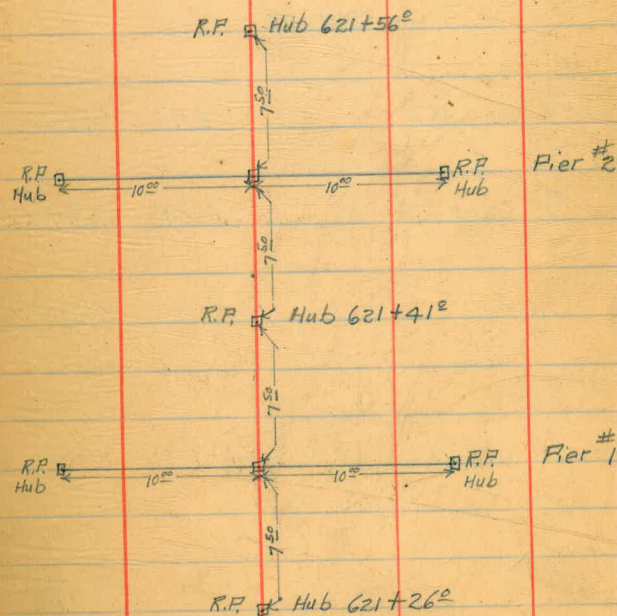 R.P. Hub 621+56⁰
7⁵⁰
R.P. Hub 10⁰⁰ 10⁰⁰ R.P. Hub Pier #2
7⁵⁰
R.P. Hub 621+41⁰
7⁵⁰
R.P. Hub 10⁰⁰ 10⁰⁰ R.P. Hub Pier #1
7⁵⁰
R.P. Hub 621+26⁰